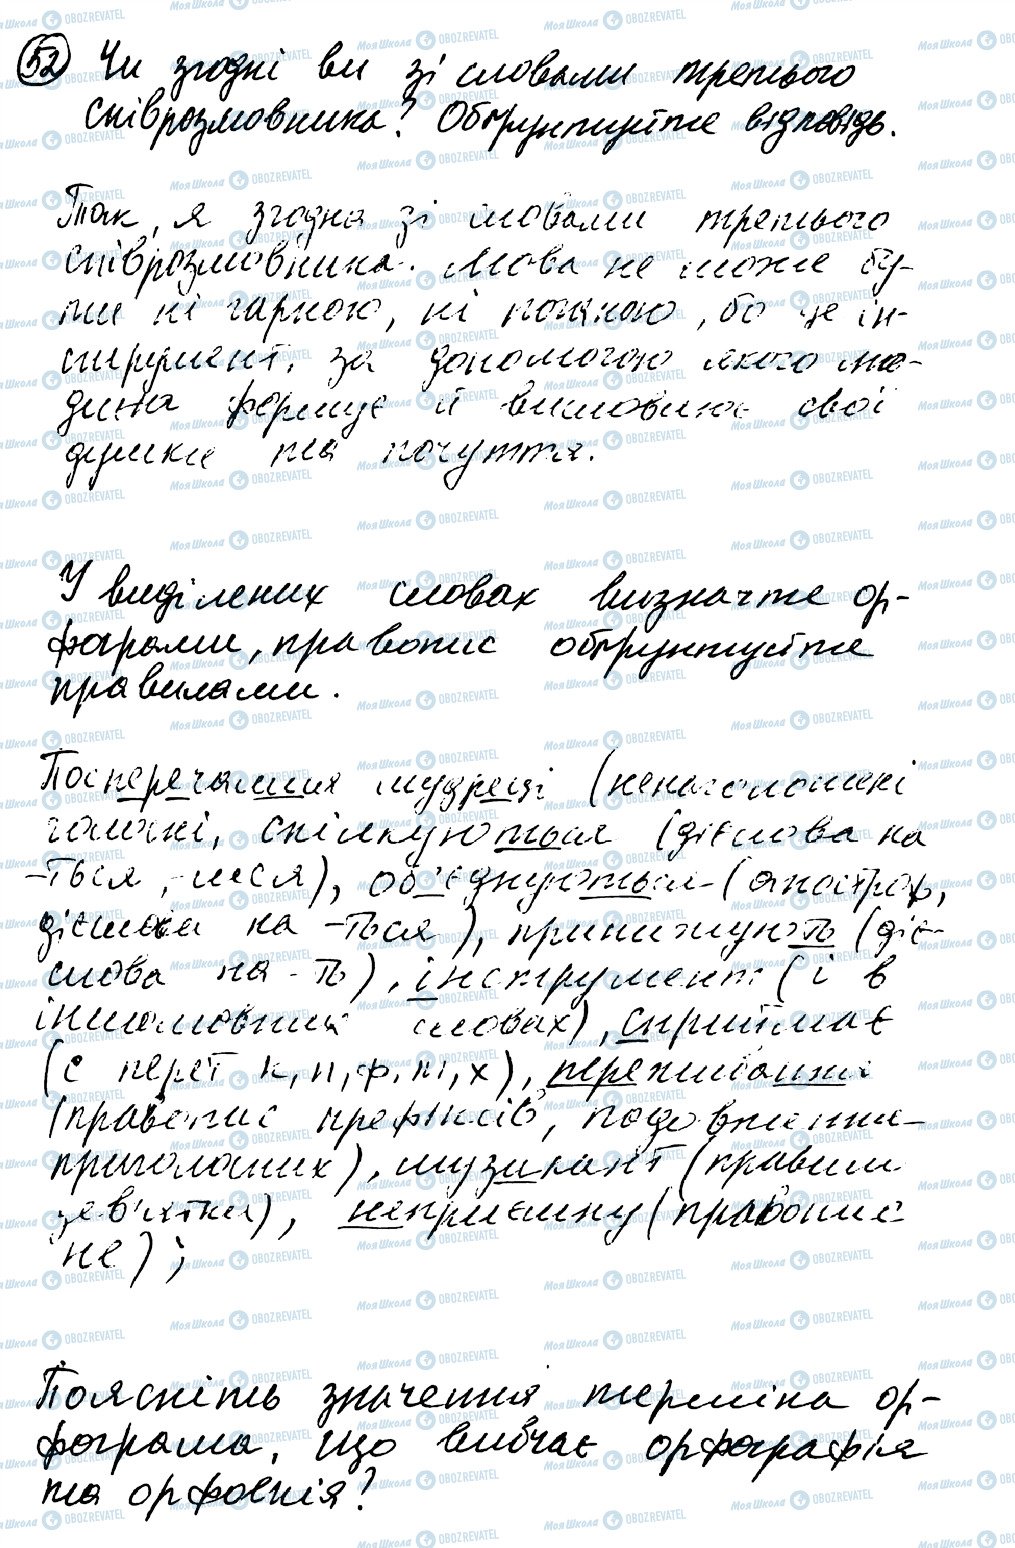 52 Чи згодні ви зі словами третього
співрозмовника? Обґрунтуйте відповідь.
Так, я згодна зі словами третього
співрозмовника. Мова не може бу-
ти ні гарною, ні поганою, бо це ін-
струмент, за допомогою якого лю-
дина формує й висловлює свої
думки та почуття.
У виділених словах визначте ор-
фограми, правопис обґрунтуйте
правилами.
Посперечалися мудреці (ненаголошені
голосні, спілкуються (дієслова на
-ться, -шся), об'єднуються (апостроф,
дієслова на -ться), принижують (діє-
слова на -ть), інструмент (і в
іншомовних словах), сприймає
(с перед к, п, ф, т, х), переживання
(правопис префіксів, подовження
приголосних), музикант (правила
дев'ятки), неприємну (правопис
не);
Поясніть значення терміна ор-
фограма. Що вивчає орфографія
та орфоепія?